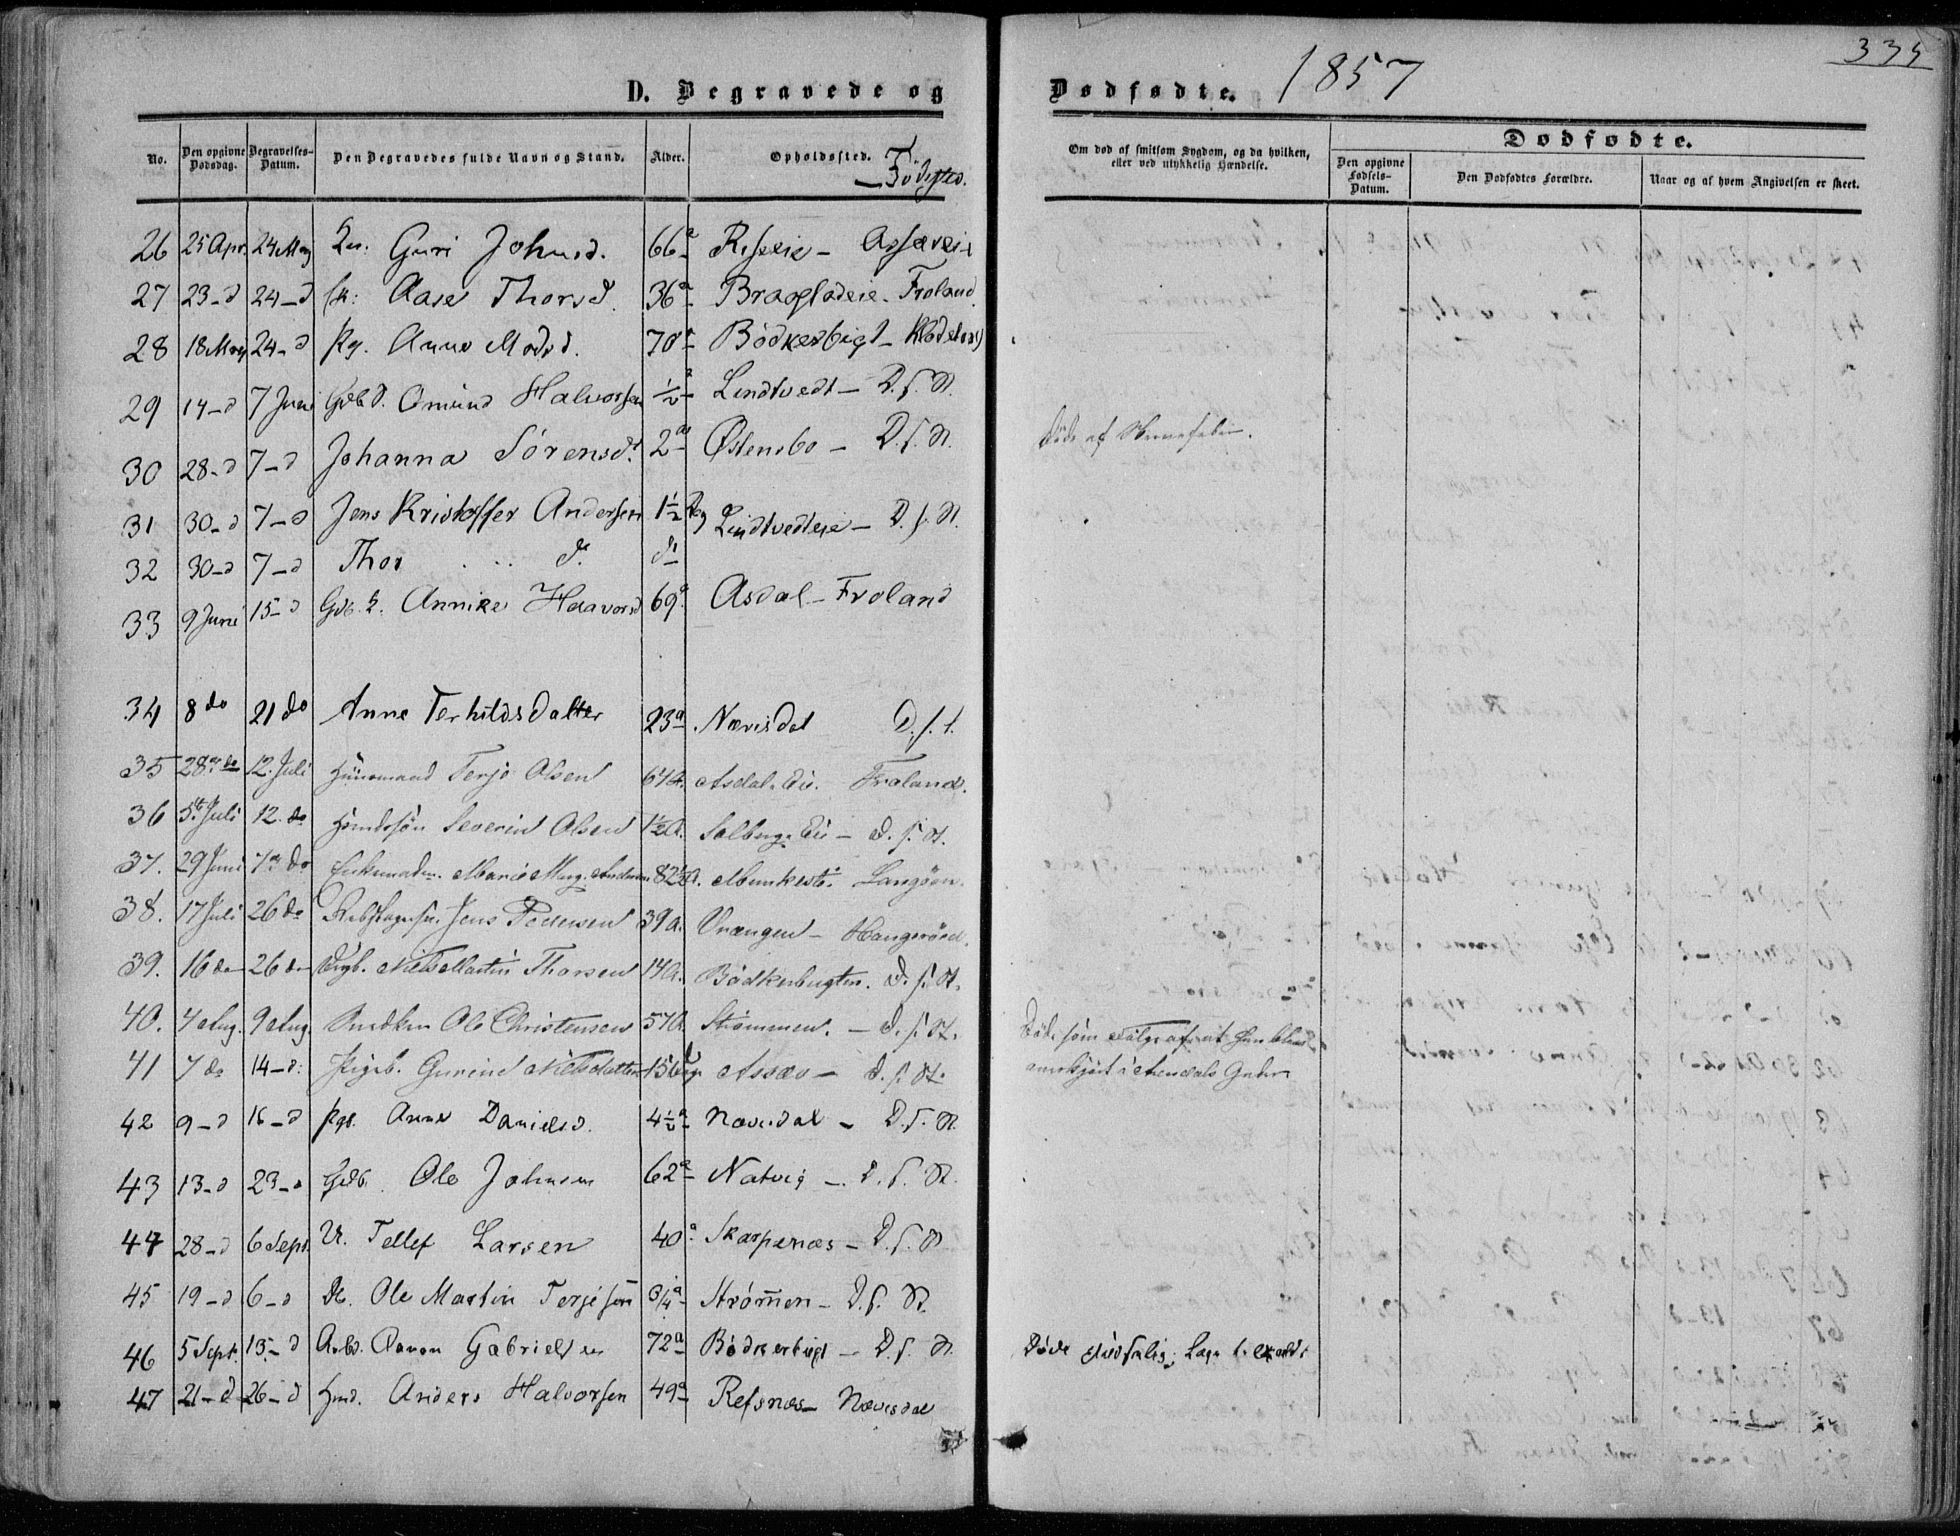 335
D. Begravede og Dødfødte. 1857
No. Den opgivne Dødsdag. Begravelses-Datum. Den Begravedes fulde Navn og Stand. Alder. Opholdssted. — Fødested. Om død af smitsom Sygdom, og da hvilken, eller ved ulykkelig Hændelse. Dødfødte. Den opgivne Fødsels-Datum. Den Dødfødtes Forældre. Naar og af hvem Angivelsen er skeet.
26 25 Apr. 24 May Guri Johnsd. 66 a
27 23 - d 24 - d Aase Thorsd. 36 a Froland
28 18 May 24 - d Pg. Anne Madsd. 70 a Bødkerbigt -
29 14 - d 7 Juni Gdb d. Omund Halvorsen ½ a Lindtvedt - D. s. St.
30 28 - d 7 - d Johanna Sörensdt. 2 a Østensbo - D. s. St. Døde af
31 30 - d 7 - d Jens Kristoffer Andersen 1½ Dag Lindtvedteie - D. s. St.
32 30 - d 7 - d Thor do do
33 9 Juni 15 - d Gdb. k. Annike Haavorsd 69 a Asdal - Froland
34 8 do 21 do Anne Terkildsdatter 23 a Nævisdal D. s. s.
35 28 de do 12. Juli Huusmand Terje Olsen Asdals Eie. Froland.
36 5te Juli 12. do Severin Olsen 1½ A. Solberg Eie - D. s. St.
37. 29 Juni do Enkemadm. Marie Marg. 82½ A. Langöen.
38. 17 Juli 26 do Jens Pedersen 39 A. Vrængen -
39. 16 do 26 do Ungk. Niels Martin Thorsen 14 A. Bødkerbugten. D. s. St.
40. 4 Aug. 9 Aug. Ole Christensen 57 A. Strømmen. - D. s. St. Døde som Følge af at han blev
41 7 do 14 - d: Pigeb. Gurine Nielsdatter Assæv - D. s. St. overkjørt i Arendals Gader
42 9 - d 16 - d Pgb. Anne Danielsd. 4½ a Nævisdal - D. s. St.
43 13 - d 23 - d Gdb. Ole Johnsen 62 a Natvig - D. s. St.
44 28 - d 6 Sept. U. Tellef Larsen 40 a Skarpenæs - D. s. St
45 19 - d 6 - d Ole Martin Terjesen 3/4 a Strømen - D. s. St.
46 5 Sept. 13 - d Aanon Gabrielsen 72 a Bødkerbugt - D. s. St. Døde
47 21 - d 26 - d Hmd. Anders Halvorsen 49 a Refsnes - Nævisdal